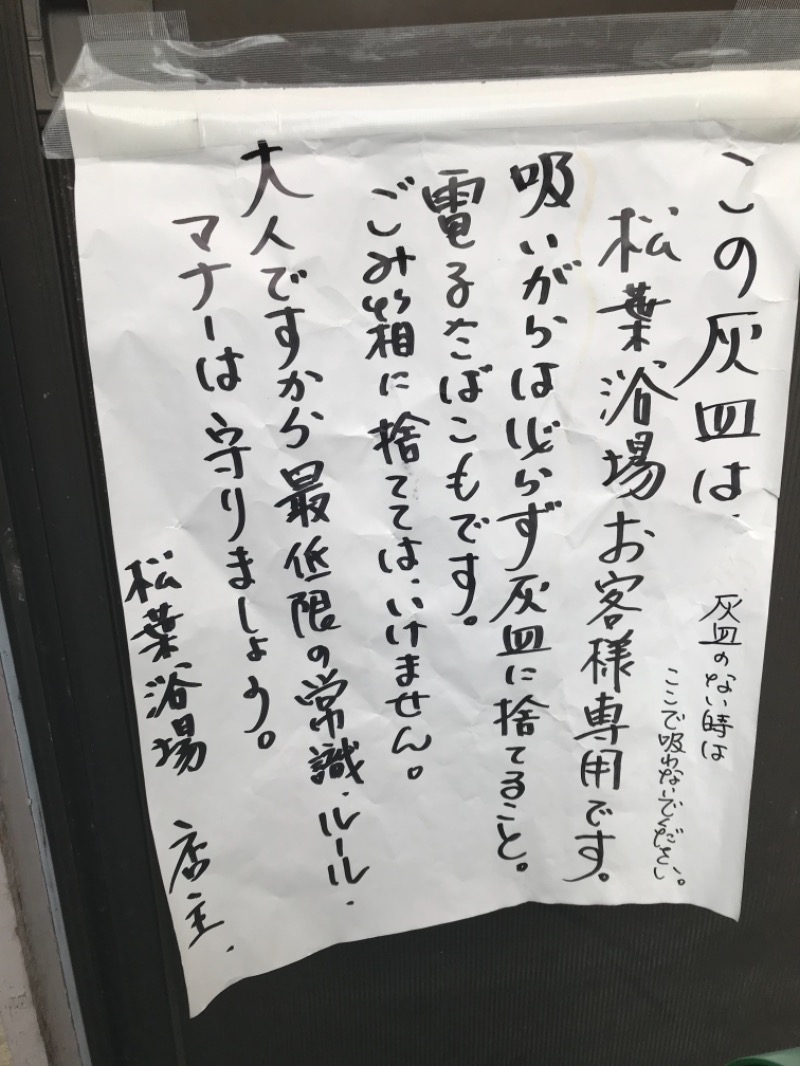 この灰皿は、
灰皿のない時は
ここで吸わないでください。
松葉浴場お客様専用です。
吸いがらは必らず灰皿に捨てること。
電子たばこもです。
ごみ箱に捨てては、いけません。
大人ですから最低限の常識・ルール・
マナーは守りましょう。
松葉浴場 店主.